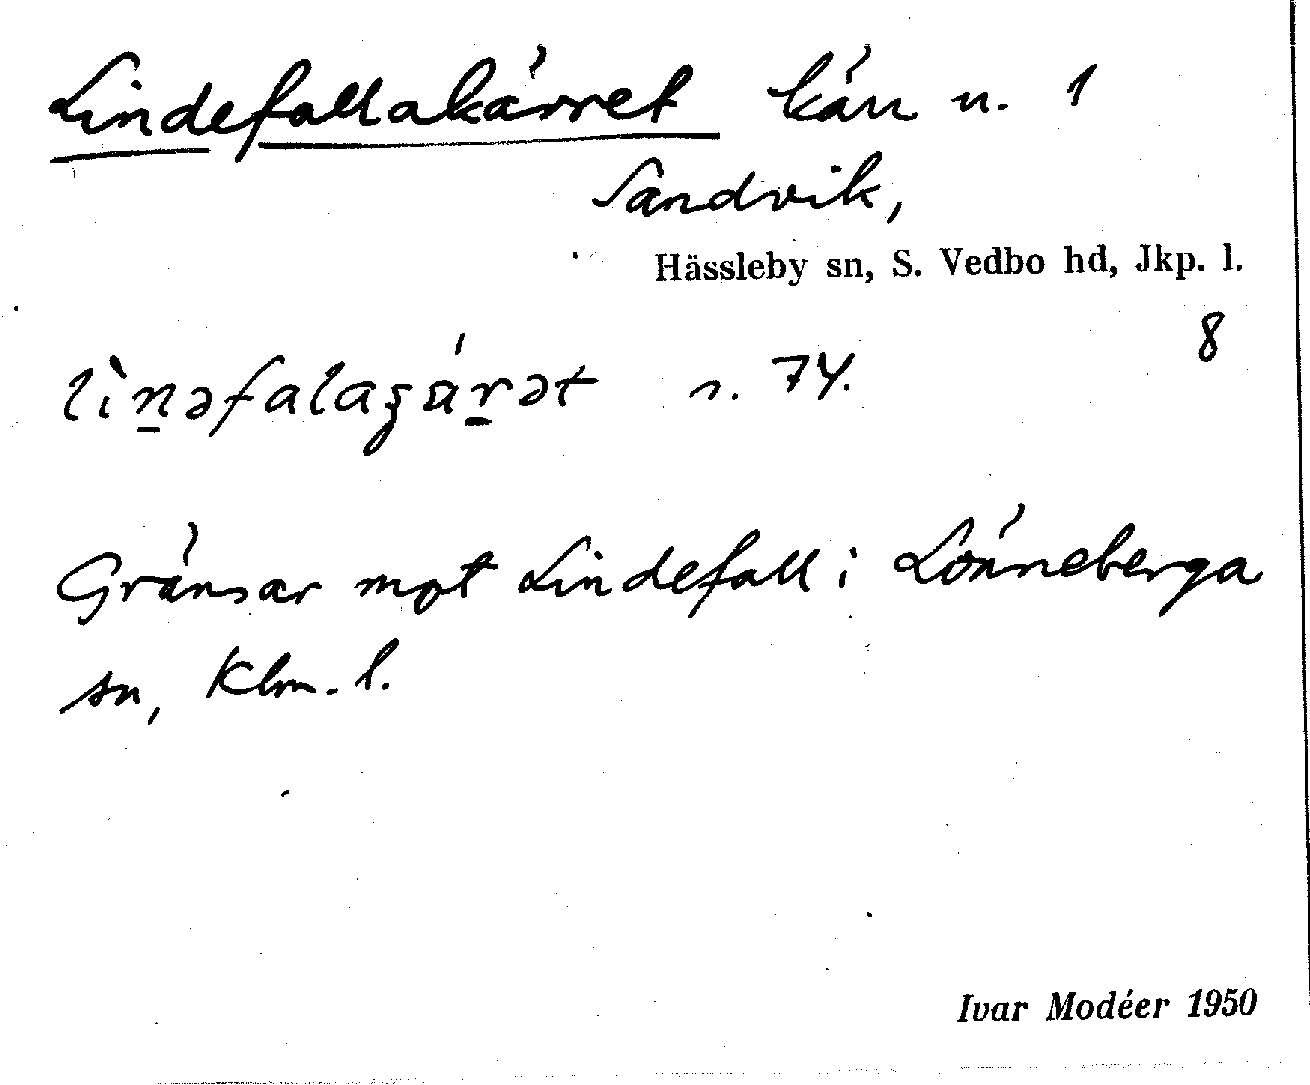 Lindefallakärret kärr n. 1
Sandvik,
Hässleby sn, S. Vedbo hd, Jkp. l.
8
n. 74.
Gränsar mot Lindefall i Lönneberga
sn, Klm. l.
Ivar Modéer 1950